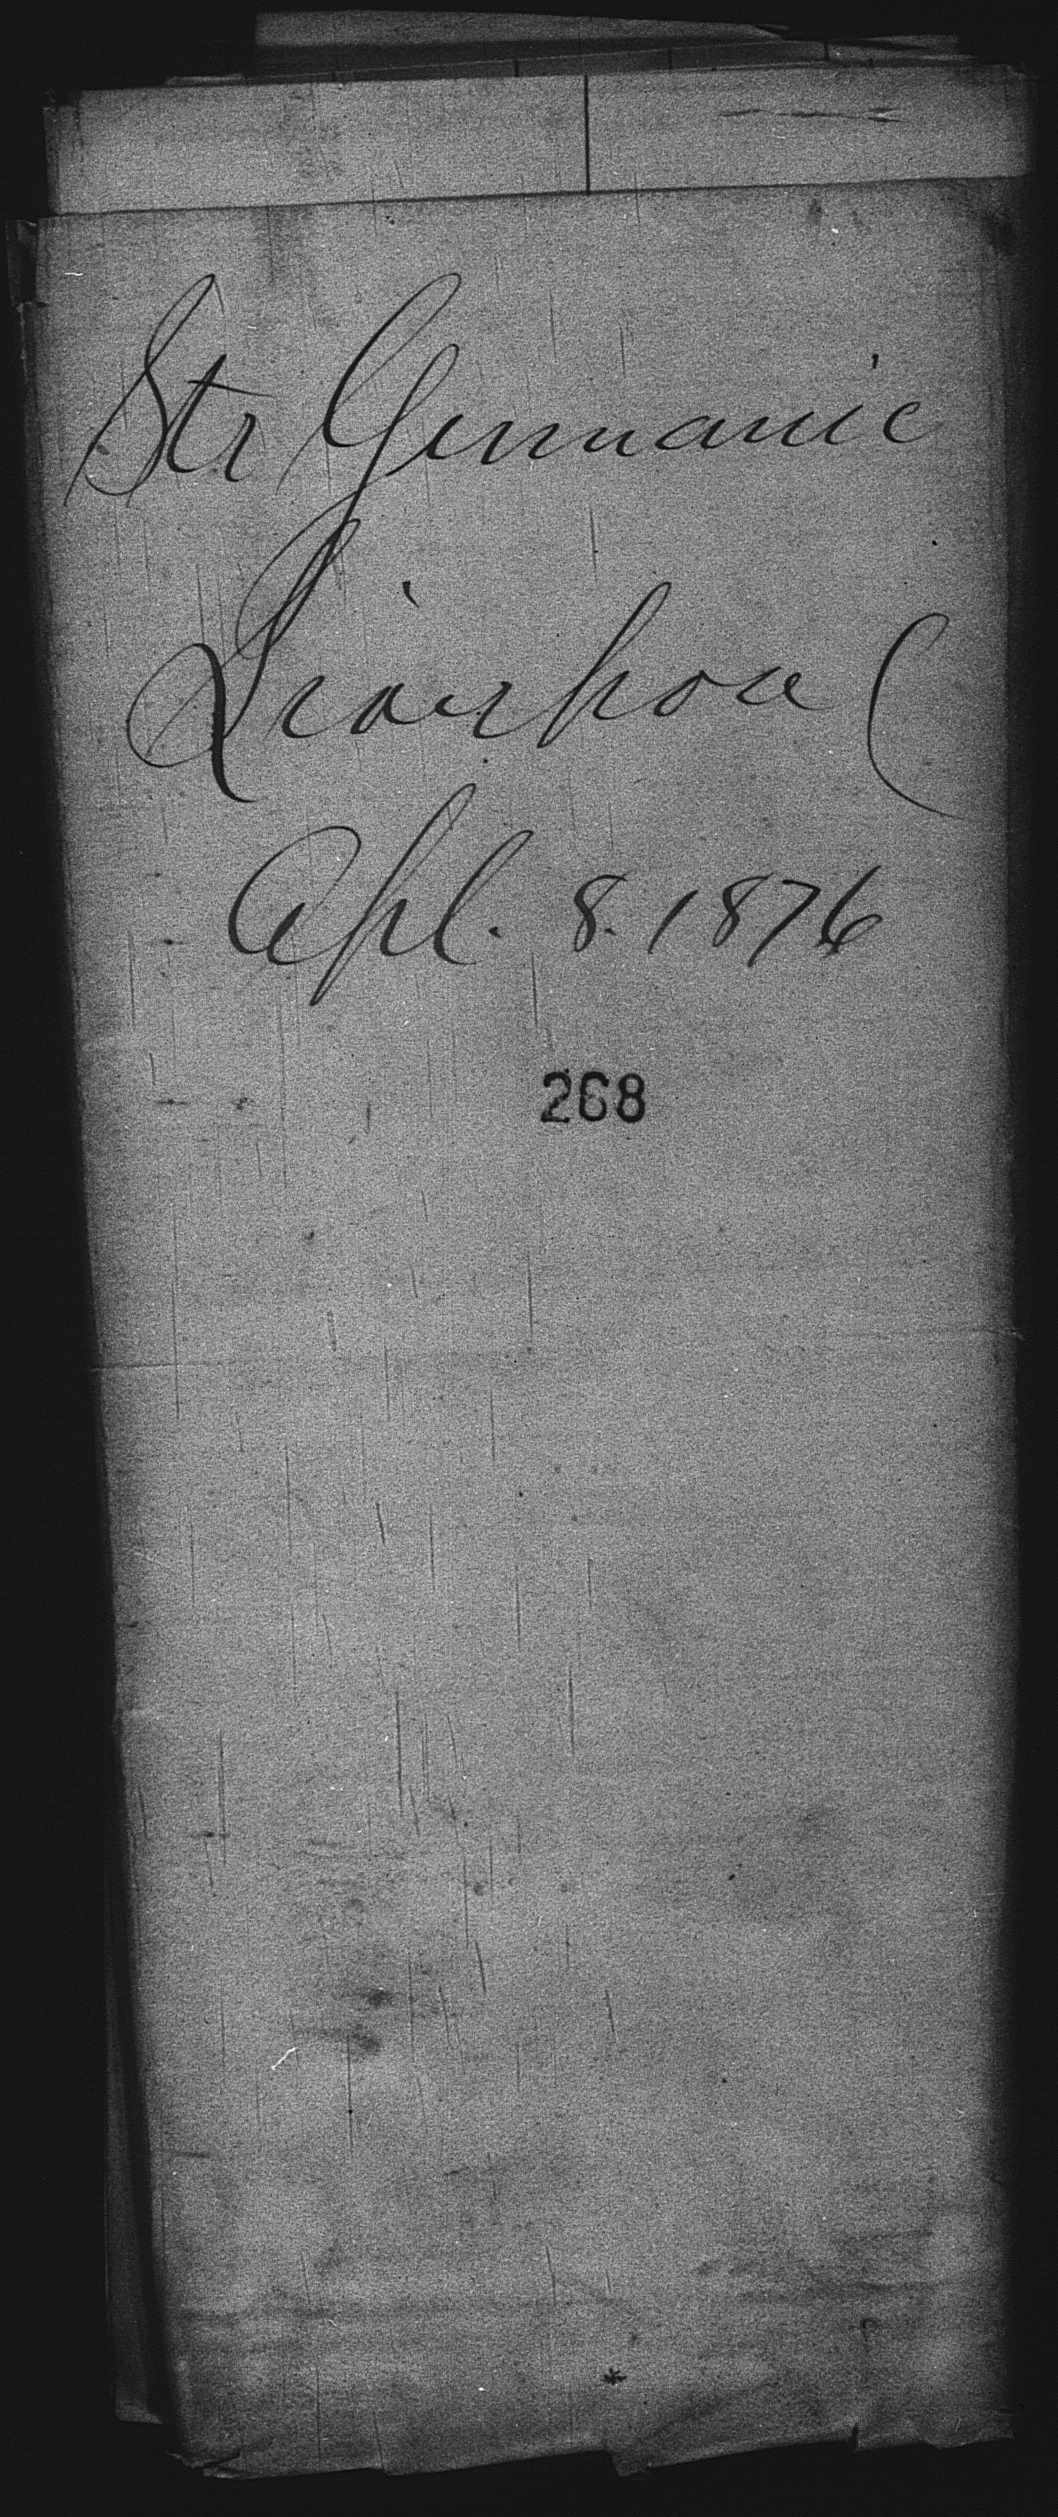 Str Germanic
Liverpool
Apl. 8. 1876
268